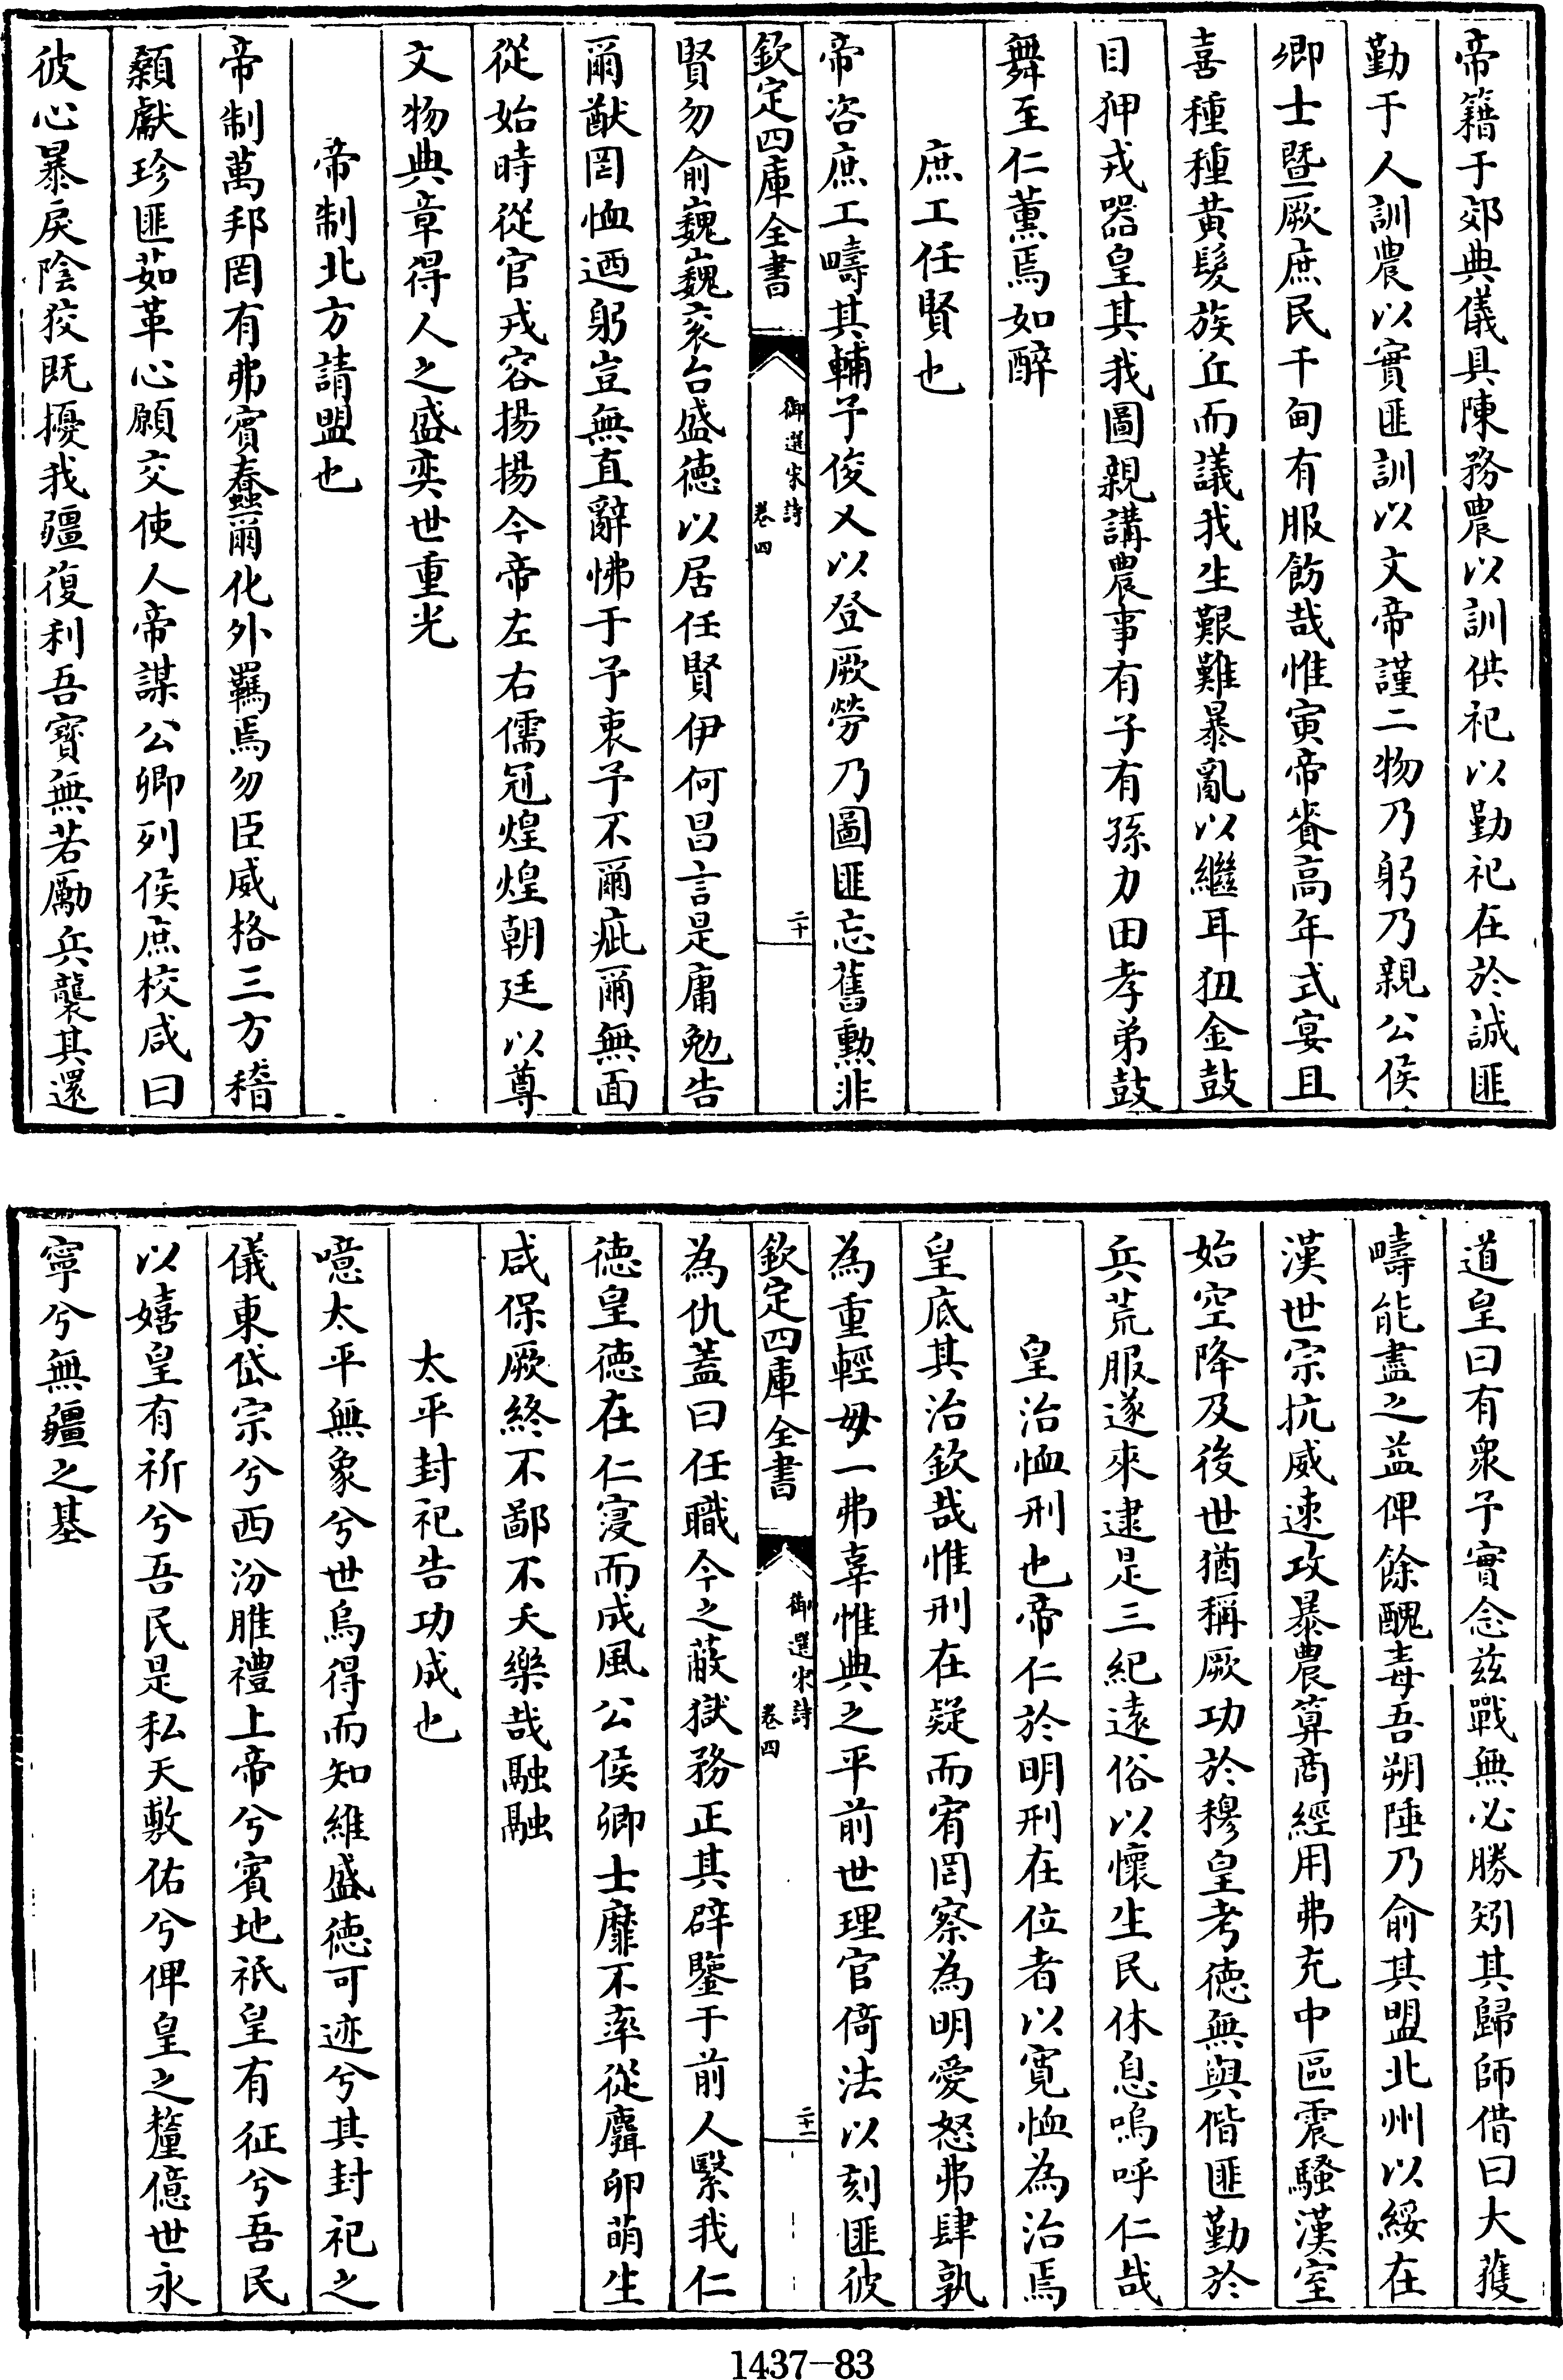 帝籍于郊典儀具陳務農以訓供祀以勤祀在於誠匪
勤于人訓農以實匪訓以文帝謹二物乃躬乃親公侯
卿士暨厥庶民千甸有服飭哉惟寅帝賚高年式宴且
喜種種黃髮族丘而議我生艱難暴亂以繼耳狃金鼓
目狎戎器皇其我圖親講農事有子有孫力田孝弟鼓
舞至仁薰焉如醉
庶工任賢也
帝咨庶工疇其輔予俊乂以登厥勞乃圖匪忘舊勲非
欽定四庫全書
御選宋詩
卷四
二十
賢勿俞巍巍衮台盛德以居任賢伊何昌言是庸勉告
爾猷罔恤迺躬豈無直辭怫于予衷予不爾疵爾無面
從始時從官戎容揚揚今帝左右儒冠煌煌朝廷以尊
文物典章得人之盛奕世重光
帝制北方請盟也
帝制萬邦罔有弗賓蠢爾化外羈焉勿臣威格三方稽
顙獻珍匪茹革心願交使人帝謀公卿列侯庶校咸曰
彼心暴戾陰狡既擾我疆復利吾寶無若勵兵襲其還
道皇曰有衆予實念兹戰無必勝矧其歸師借曰大獲
疇能盡之益俾餘醜毒吾朔陲乃俞其盟北州以綏在
漢世宗抗威速攻暴農算商經用弗充中區震騷漢室
始空降及後世猶稱厥功於穆皇考德無與偕匪勤於
兵荒服遂來逮是三紀遠俗以懷生民休息嗚呼仁哉
皇治恤刑也帝仁於明刑在位者以寬恤為治焉
皇底其治欽哉惟刑在疑而宥罔察為明愛怒弗肆孰
為重輕毋一弗辜惟典之平前世理官倚法以刻匪彼
欽定四庫全書
御選宋詩
卷四
二十一
為仇蓋曰任職今之蔽獄務正其辟鑒于前人繄我仁
德皇德在仁寖而成風公侯卿士靡不率從麛卵萌生
咸保厥終不鄙不夭樂哉融融
太平封祀告功成也
噫太平無象兮世烏得而知維盛德可迹兮其封祀之
儀東岱宗兮西汾脽禮上帝兮賓地祇皇有征兮吾民
以嬉皇有祈兮吾民是私天敷佑兮俾皇之釐億世永
寧兮無疆之基
1437—83